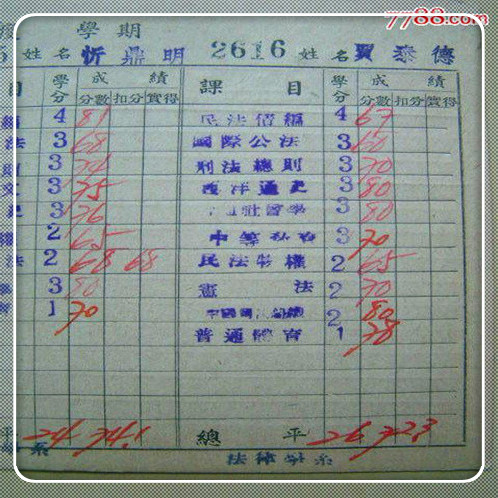 7788.com
學期
姓名忻鼎明 2616 姓名賈泰德
目 學分 成績 課目 學分 成績
分數 扣分 實得 分數 扣分 實得
4 81 民法債編 4 67
法 3 68 國際公法 3 60
則 3 74 刑法總則 3 70
3 75 西洋通史 3 80
3 76 3 80
2 65 3 70
法 2 68 68 民法物權 2 65
3 80 憲法 2 70
育 1 70 2 80
普通體育 1 78
平 24 74.1 總平 26 72.3
系 法律學系